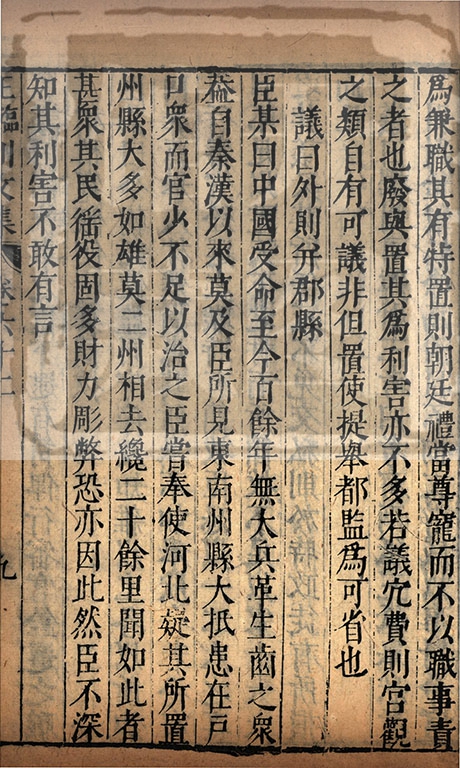 為兼職其有特置則朝廷禮當尊寵而不以職事責
之者也廢與置其為利害亦不多若議冗費則宮觀
之類自有可議非但置使提舉都監為可省也
議曰外則幷郡縣
臣某曰中國受命至今百餘年無大兵革生齒之衆
蓋自秦漢以來莫及臣所見東南州縣大抵患在戶
口衆而官少不足以治之臣嘗奉使河北疑其所置
州縣大多如雄莫二州相去纔二十餘里聞如此者
甚衆其民徭役固多財力彫弊恐亦因此然臣不深
知其利害不敢有言
王臨川文集 卷六十二 九